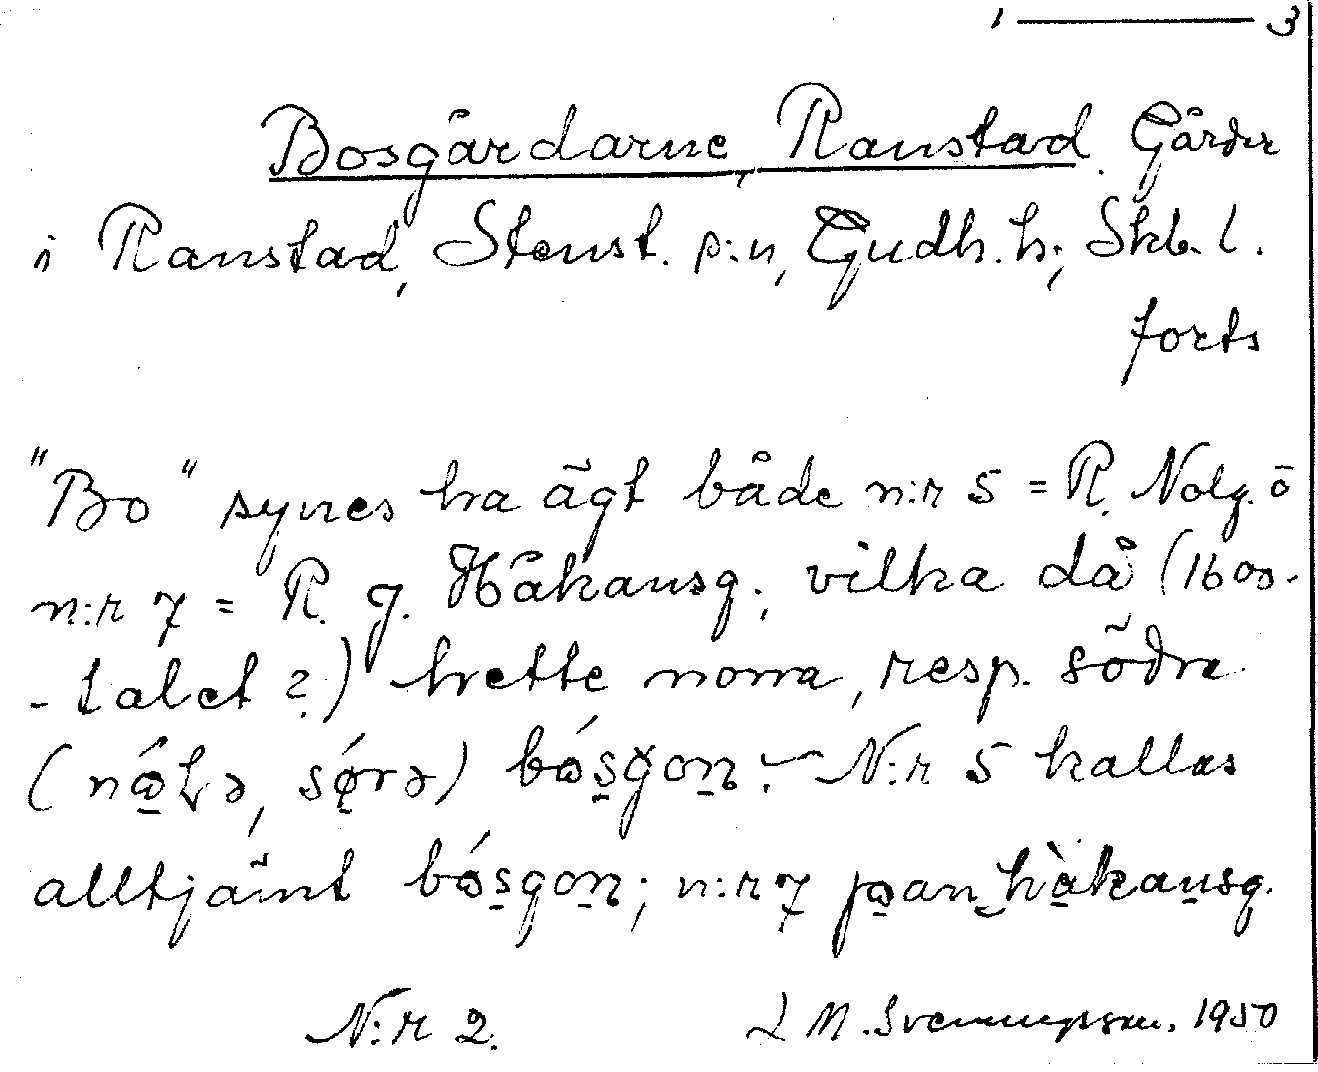 1 — 3
Bosgårdarne, Ranstad. Gårdar
i Ranstad, Stenst. s:n, Gudh. h., Skb. l.
forts
"Bo" synes ha ägt både n:r 5 = R. Nolg. o
n:r 7 = R. g. Håkansg., vilka då (1600-
-talet?) hette norra, resp. södra
(nó̱ɽə, sǿ̱rə) bósgon. N:r 5 kallas
alltjämt bósgon; n:r 7 håkansg.
N:r 2. L M. Svenungsson. 1950